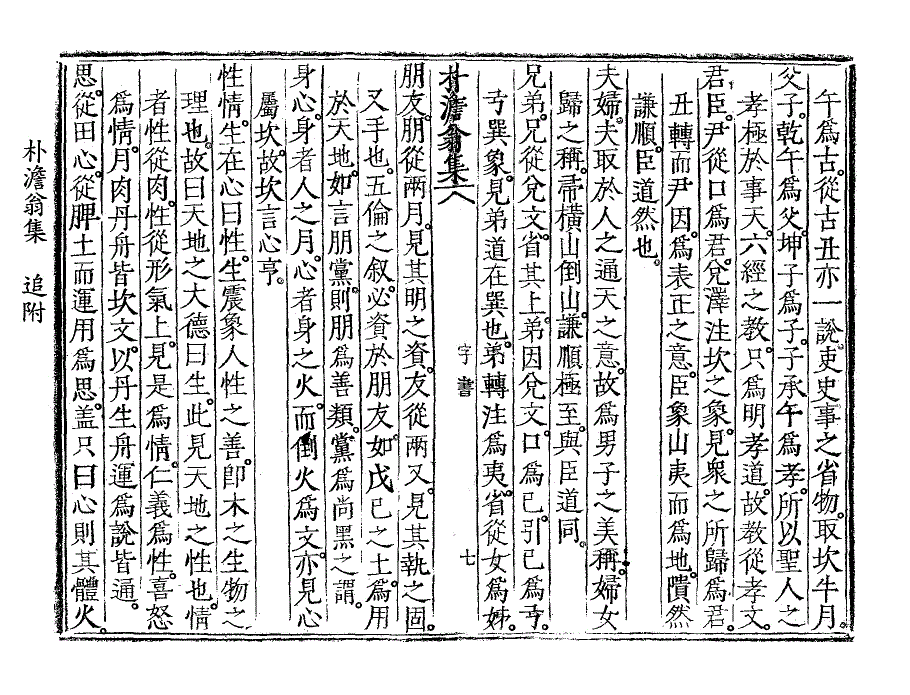 午爲古。從古丑亦一說。吏史事之省物。取坎牛月。
父子。乾午爲父。坤子爲子。子承午爲孝。所以聖人之
孝極於事天。六經之敎。只爲明孝道。故敎從孝文。
君臣。尹從口爲君。兌澤注坎之象。見衆之所歸爲君。
丑轉而尹因。爲表正之意。臣象山夷而爲地。隤然
謙順。臣道然也。
夫婦。夫取於人之通天之意。故爲男子之美稱。婦女
歸之稱。帚橫山倒山。謙順極至。與臣道同。
兄弟。兄從兌文。省其上。弟因兌文。口爲己。引己爲弓。
弓巽象。見弟道在巽也。弟轉注爲夷。省從女爲姊。
朴澹翁集六
字書
七
朋友。朋從兩月。見其明之資。友從兩又。見其執之固。
又手也。五倫之叙。必資於朋友。如戊己之土。爲用
於天地。如言朋黨。則朋爲善類。黨爲尚黑之謂。
身心。身者人之月。心者身之火。而倒火爲文。亦見心
屬坎。故坎言心亨。
性情。生在心曰性。生震象人性之善。卽木之生物之
理也。故曰天地之大德曰生。此見天地之性也。情
者性從肉。性從形氣上。見是爲情。仁義爲性。喜怒
爲情。月肉丹舟皆坎文。以丹生舟運爲說皆通。
思。從田心。從脾土而運用爲思。盖只曰心則其體火。
朴澹翁集　追附